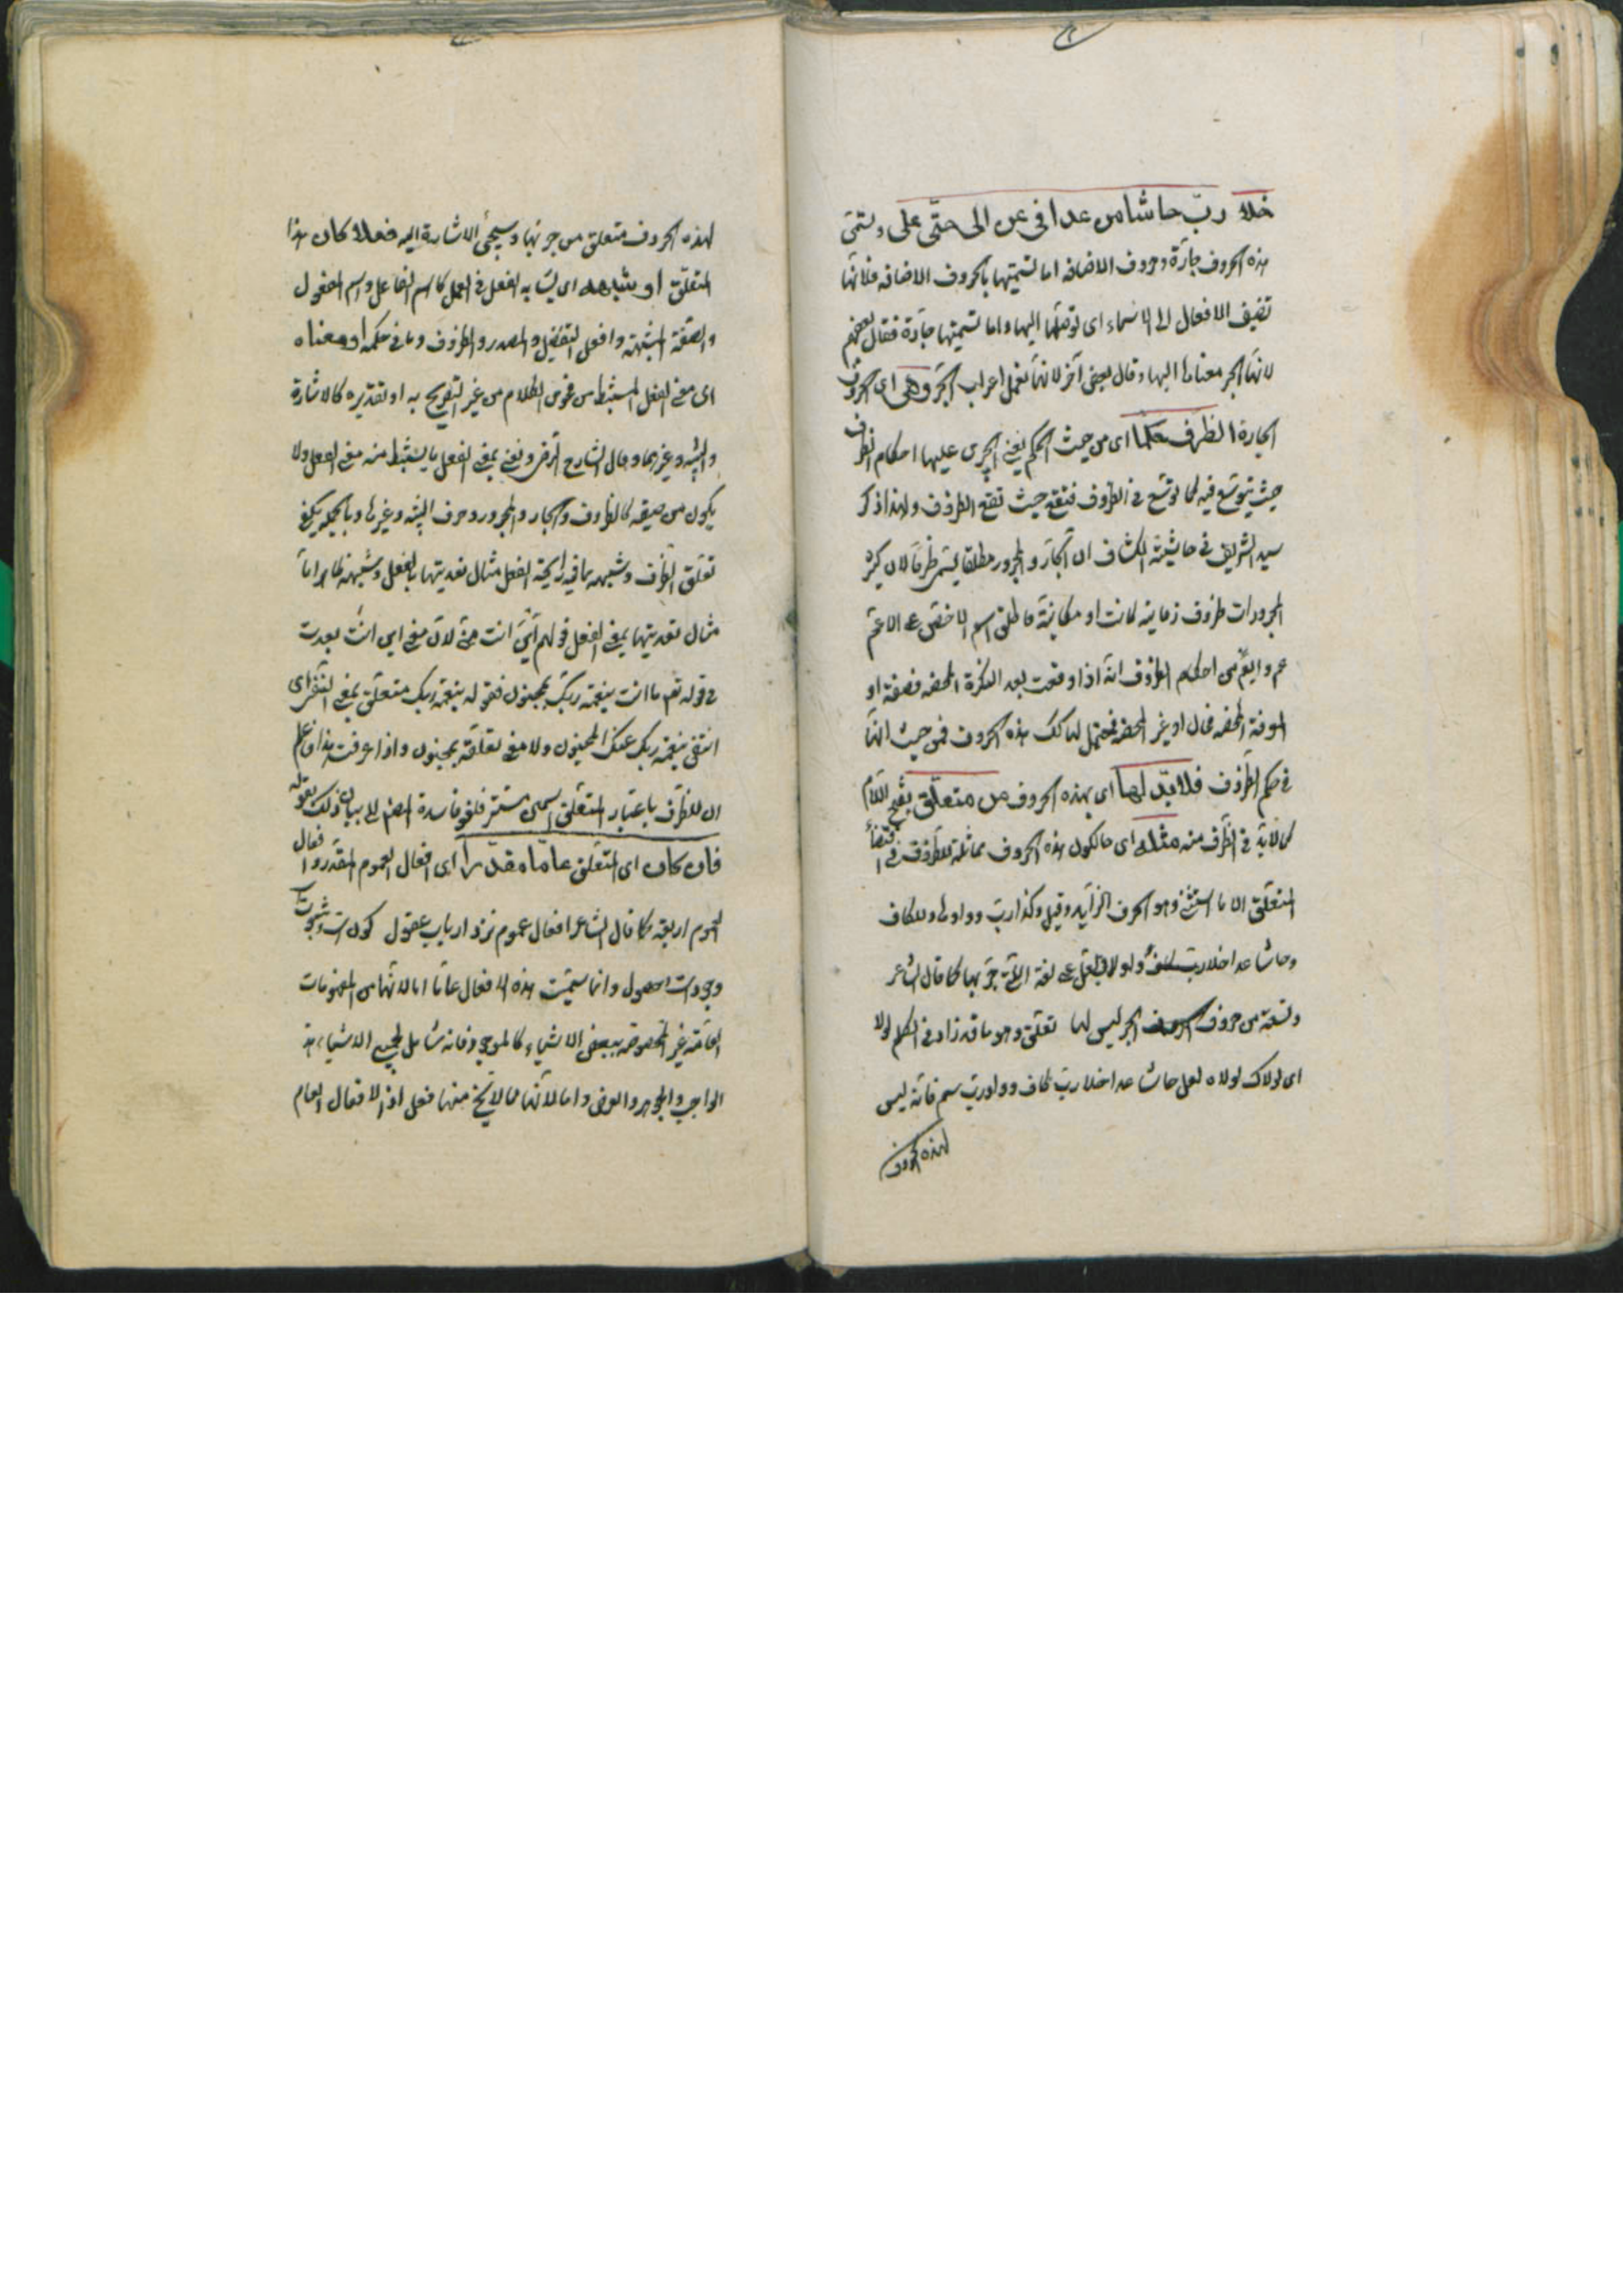 خلا ربّ حاشا من عدا فى عن الى حتّى على وتسمّى
هذه الحروف جارّة وحروف الاضافه اما تسميتها بالحروف الاضافه فلانّها
تضيف الافعال الى الاسماء اى توصلها اليها واما تسميتها جارّة فقال بعضهم
لانها تجر معناها اليها وقال بعض آخر لانها تعمل اعراب الجرّ وهى اى الحروف
الجارة الظرف حكما اى من حيث الحكم يعنى يجرى عليها احكام الظرف
حيث يتوسّع فيه كما توسّع فى الظروف فتقع حيث تقع الظروف ولهذا ذكر
سيد الشريف فى حاشيته الكشاف ان الجار والمجرور مطلقا يسمى ظرفا لان كثير
المجرورات ظروف زمانية كانت او مكانية فاطلق اسم الاخصّ على الاعمّ
وايضًا من احكام الظروف انه اذا وقعت بعد النكرة المحضه فصفة او
المعرفة المحضه فحال او غير المحضه فمحتمل لهما كك هذه الحروف فمن حيث انّها
فى حكم الظروف فلابدّ لها اى بهذه الحروف من متعلّق بفتح اللام
كما لابد فى الظرف منه مثله اى حالكون هذه الحروف مماثلة للظروف فى اقتضاء
المتعلّق الا ما استثنى وهو الحرف الزايد وقيل وكذا ربّ وواوها والكاف
وحاشا عدا خلا ولولا ولعلّ على لغة التى جرّ بها كما قال الشاعر
وتسعة من حروف الجر ليس لها تعلّق وهو ما قد زاد فى الكلم لولا
اى لولاك لولاه لعل حاشا عدا خلا ربّ كاف وواو ربّ فانّه ليس
لهذه الحروف
لهذه الحروف متعلق من جرّ بها وسيجئ الاشارة اليه فعلا كان هذا
المتعلّق او شبهه اى يشابه الفعل فى العمل كاسم الفاعل واسم المفعول
والصّفة المشبهة وافعل التفضيل والمصدر والظروف وما فى حكمه او معناه
اى معنى الفعل المستنبط من فحوى الكلام من غير التصريح به او تقديره كالاشارة
والتنبيه وغيرهما وقال الشارح الرضى ونعنى بمعنى الفعل ما يستنبط منه معنى الفعل ولا
يكون من صيغته كالظروف والجار والمجرور وحرف التنبيه وغيرها وبالجملة يكفى
تعلّق الظرف وشبهه بما فيه رايحة الفعل مثال تعديتها بالفعل وشبهه ظاهر امّا
مثال تعديتها بمعنى الفعل قولهم انت منّى لانّ معنى اين انت بعدت
فى قوله تعم ما انت بنعمة ربّك بمجنون فقوله بنعمة ربك متعلّق بمعنى النفى اى
انتفى بنعمة ربك عنك المجنون ولا معنى لتعلّقه بمجنون واذا عرفت هذا فاعلم
ان للظرف باعتبار المتعلّق اسمى مستقر فلغو فاشارة المص الى بيان ذلك بقوله
فان كان اى المتعلّق عامّا مقدّرا اى افعال العموم المقدّر وافعال
العموم اربعة كما قال الشاعر افعال عموم نزد ارباب عقول كونست وثبوتست
وجودست وحصول وانما سمّيت هذه الافعال عامّا اما لانّها من المفهومات
العامّة غير المخصوصة ببعض الاشياء كالموجود فانه شامل لجميع الاشياء من
الواجب والجوهر والعرض واما لانّها مما لا يخ منها فعل اذ الافعال العام